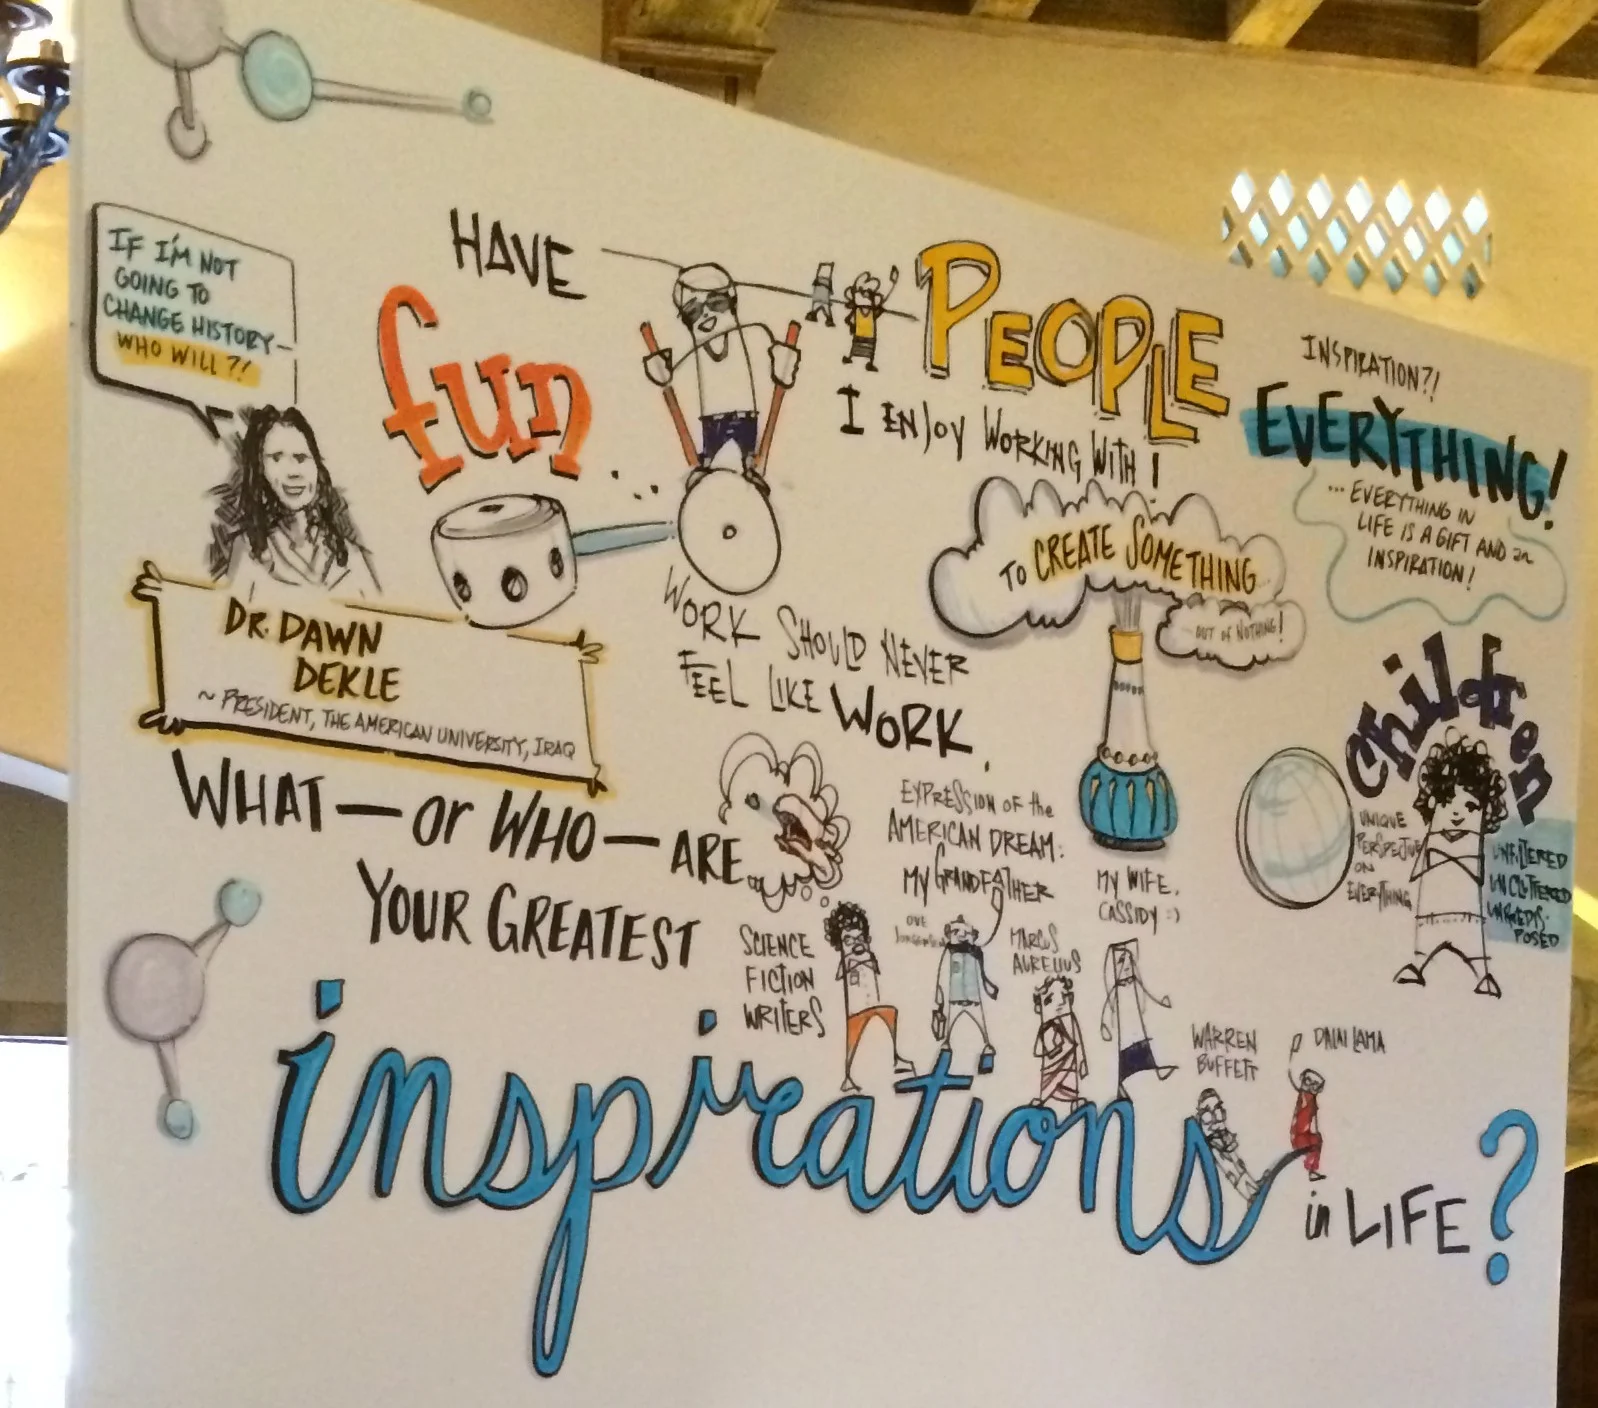 IF I'M NOT
GOING TO
CHANGE HISTORY—
WHO WILL?!
DR. DAWN
DEKLE
~ PRESIDENT, THE AMERICAN UNIVERSITY, IRAQ
HAVE
fun
WORK SHOULD NEVER
FEEL LIKE WORK.
PEOPLE
I ENJOY WORKING WITH!
TO CREATE SOMETHING
OUT OF NOTHING!
INSPIRATION?!
EVERYTHING!
... EVERYTHING IN
LIFE IS A GIFT AND an
INSPIRATION!
children
UNIQUE
PERSPECTIVE
ON
EVERYTHING
UNFILTERED
UNCLUTTERED
POSED
WHAT — or WHO — ARE
YOUR GREATEST
inspirations
in LIFE?
SCIENCE
FICTION
WRITERS
EXPRESSION OF the
AMERICAN DREAM:
MY GRANDFATHER
OVE
MARCUS
AURELIUS
MY WIFE,
CASSIDY :)
WARREN
BUFFETT
DALAI LAMA